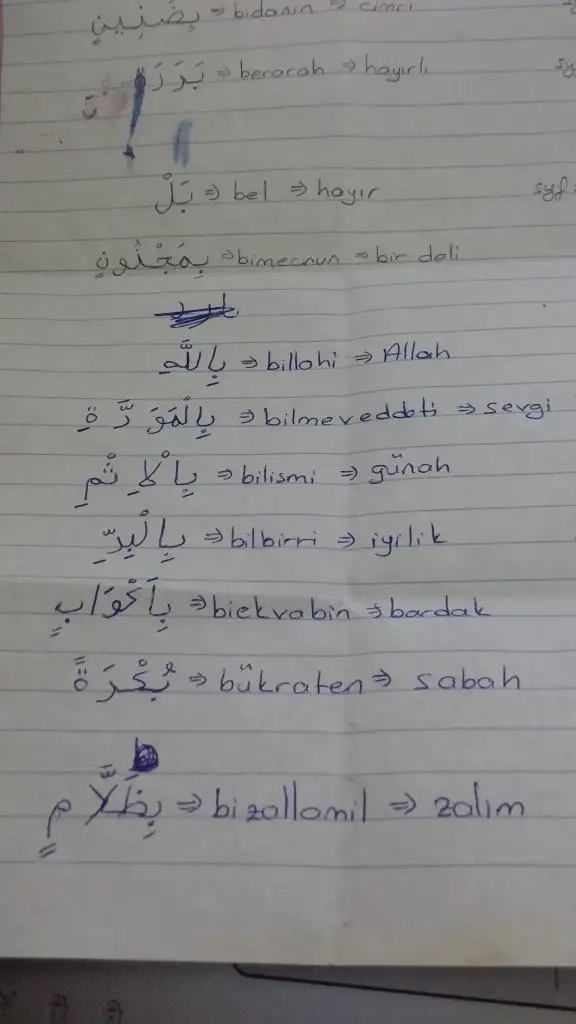 بِضَنِينٍ ⇒ bidanin ⇒ cimri
بَرَرَةٍ ⇒ berarah ⇒ hayırlı
بَلْ ⇒ bel ⇒ hayır syf
بِمَجْنُونٍ ⇒ bimecnun ⇒ bir deli
بِاللَّهِ ⇒ billahi ⇒ Allah
بِالْمَوَدَّةِ ⇒ bilmeveddeti ⇒ sevgi
بِالْاِثْمِ ⇒ bilismi ⇒ günah
بِالْبِرِّ ⇒ bilbirri ⇒ iyilik
بِاَكْوَابٍ ⇒ biekvabin ⇒ bardak
بُكْرَةً ⇒ bükraten ⇒ sabah
بِظَلَّامٍ ⇒ bizallamil ⇒ zalim